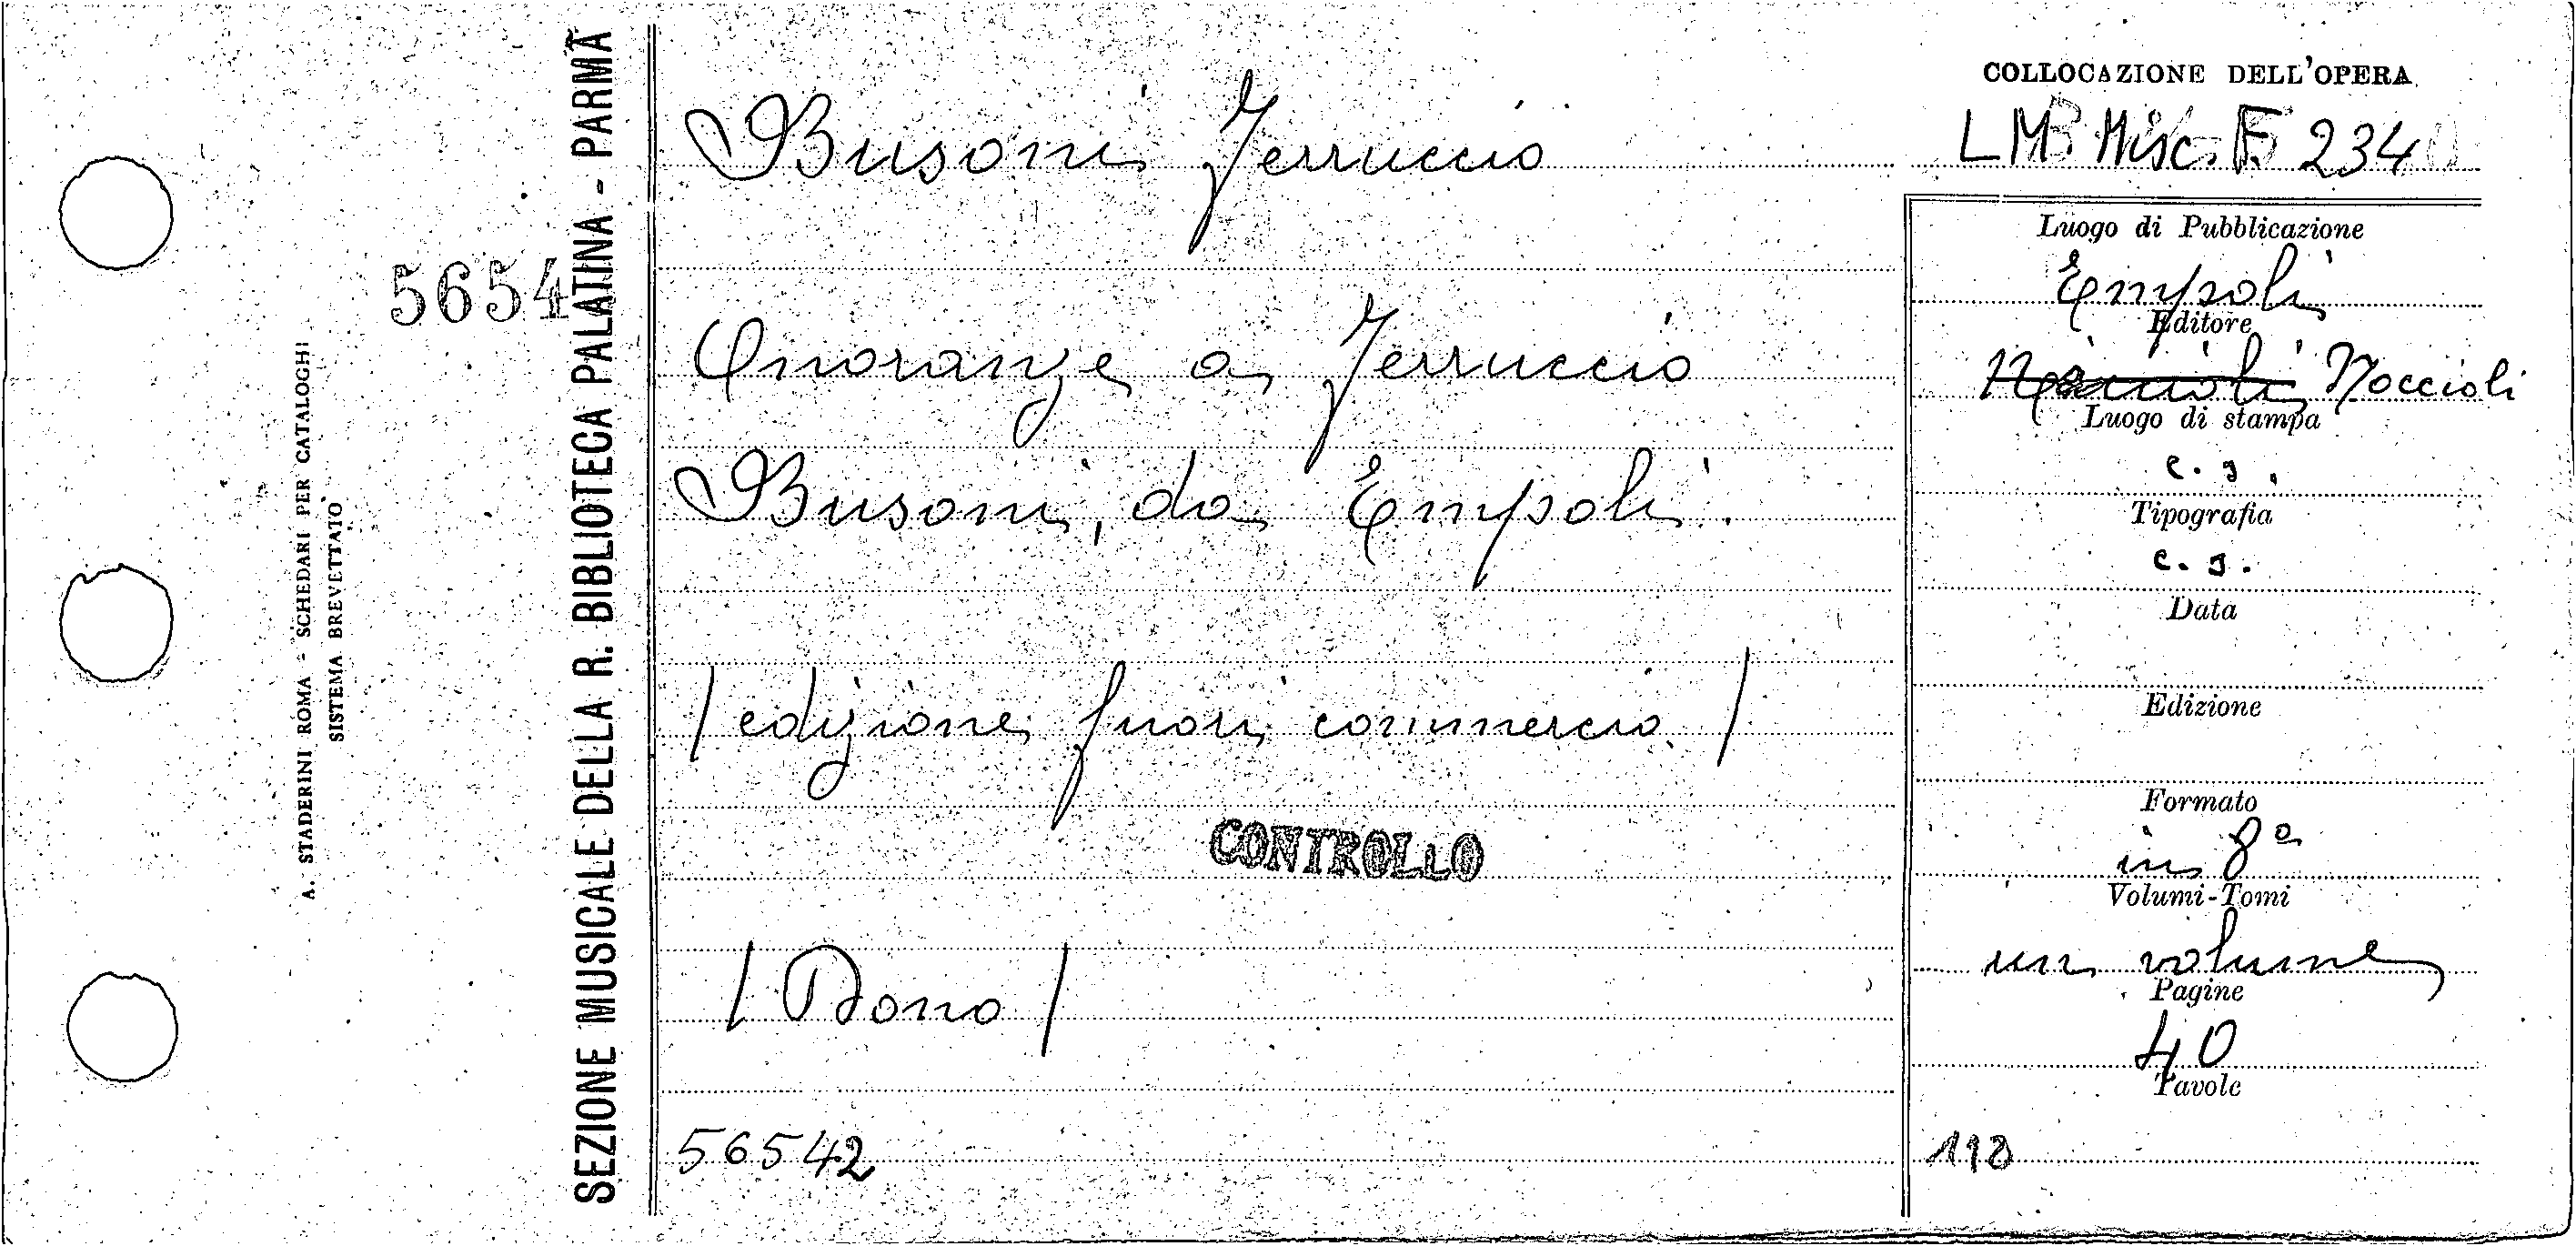 SEZIONE MUSICALE DELLA R. BIBLIOTECA PALATINA - PARMA
A. STADERINI ROMA - SCHEDARI PER CATALOGHI
SISTEMA BREVETTATO
5654
Busoni Ferruccio
Onoranze a Ferruccio
Busoni, da Empoli.
/ edizione fuori commercio. /
CONTROLLO
/ Dono /
56542
COLLOCAZIONE DELL'OPERA
LM Misc. F. 234
Luogo di Pubblicazione
Empoli
Editore
Noccioli
Luogo di stampa
c. s.
Tipografia
c. s.
Data
Edizione
Formato
in 8º
Volumi-Tomi
un volume
Pagine
40
Tavole